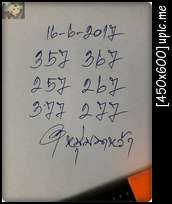 16-6-2017
357 367
257 267
377 277
[450x600] upic.me